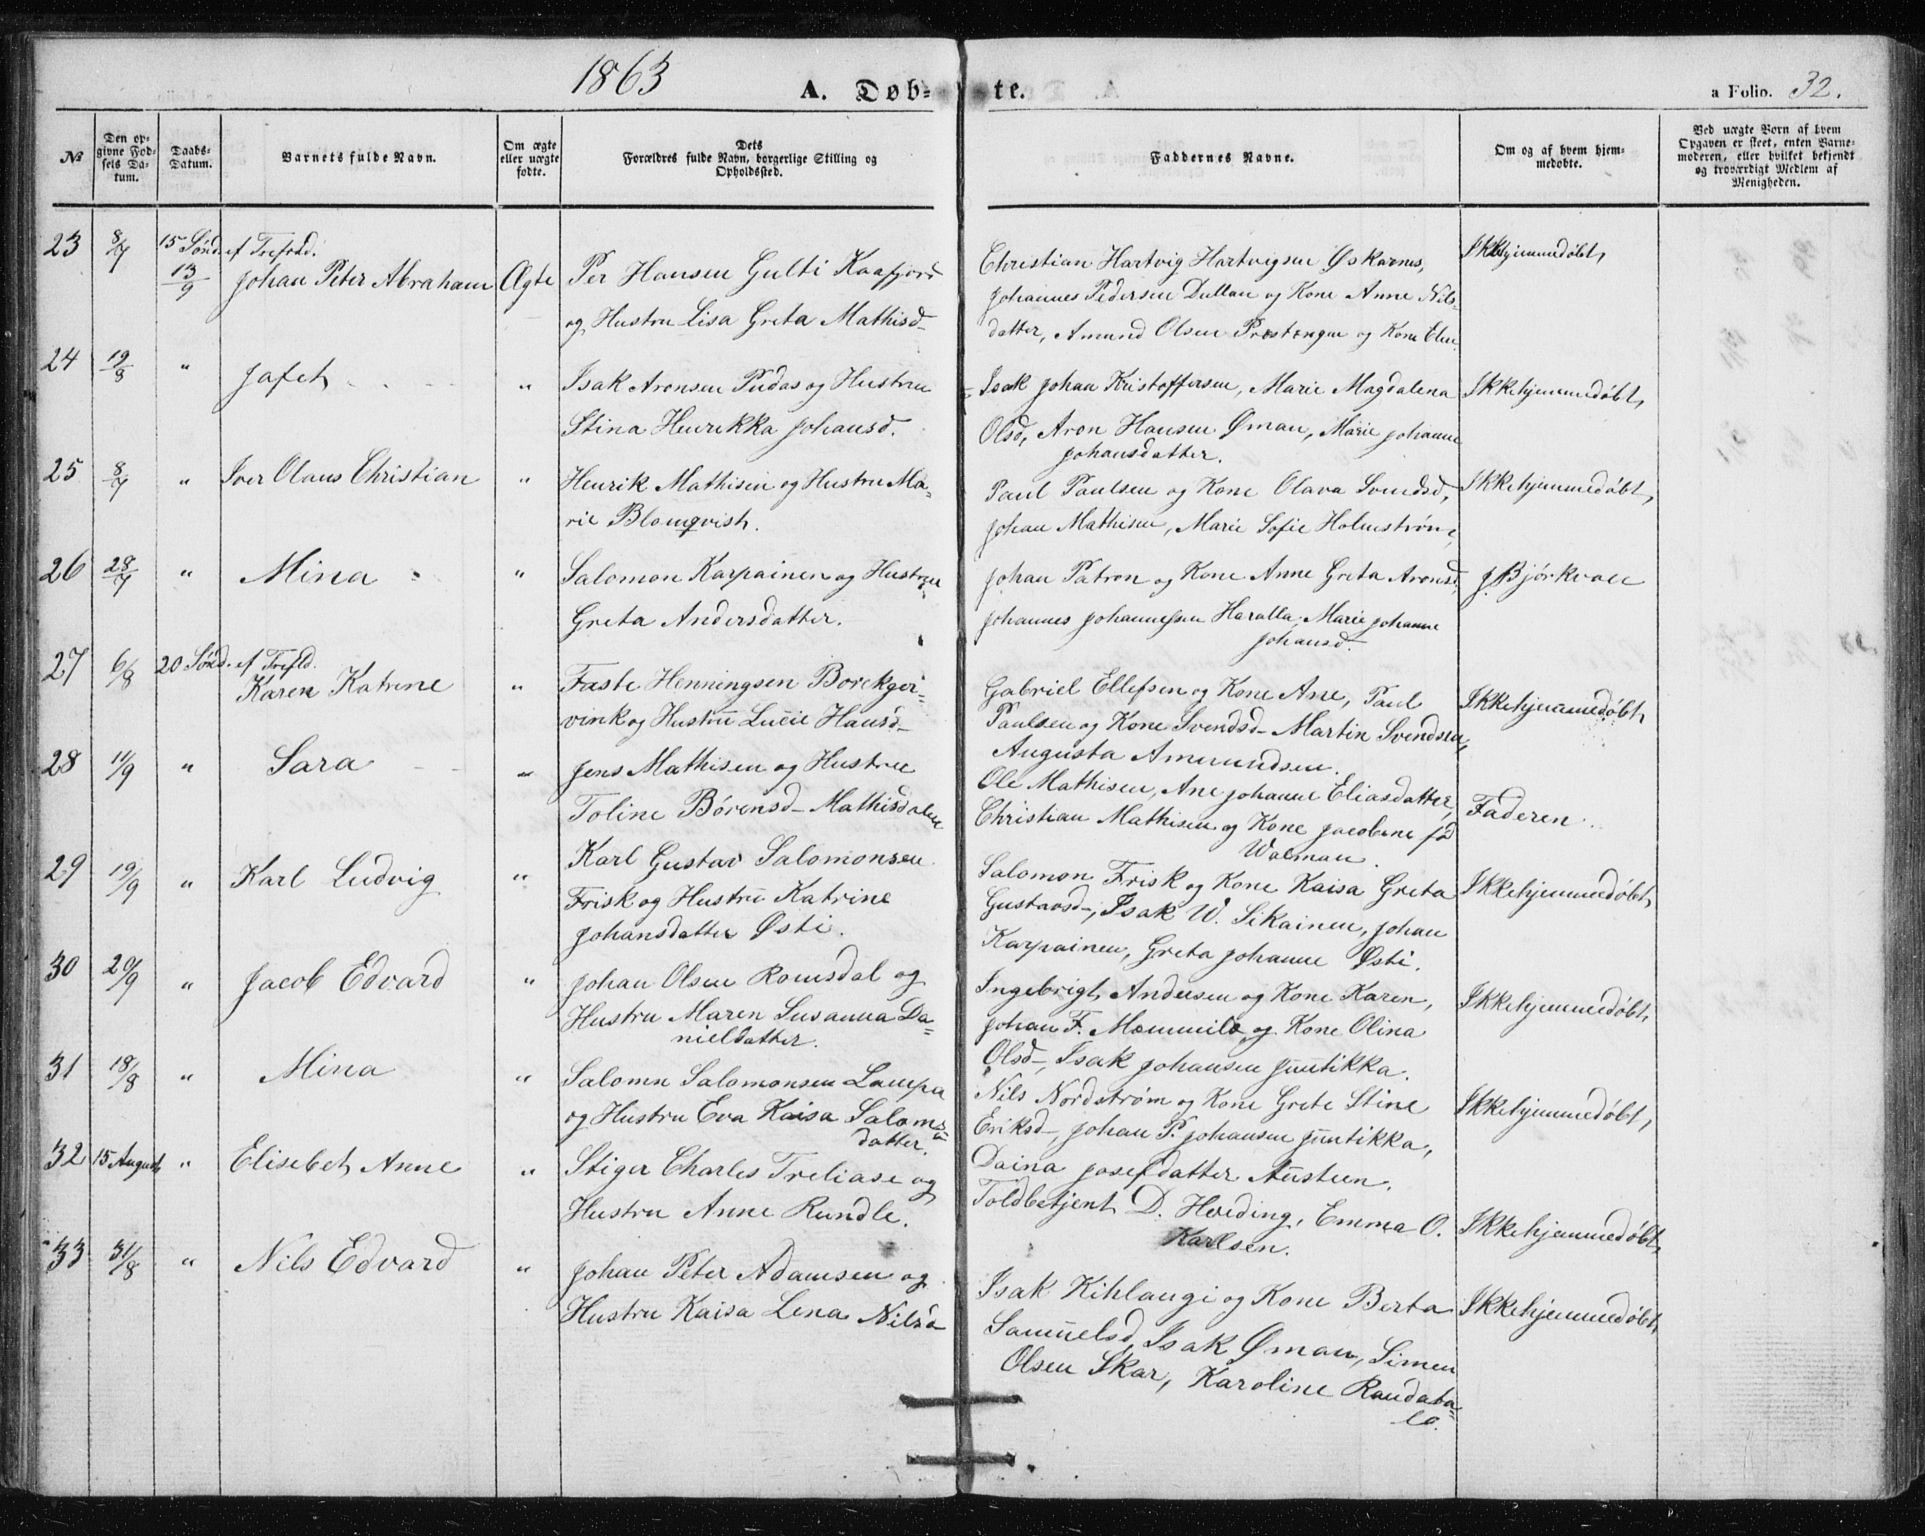 1863
A. Døb-
te.
a Folio. 32.
No
Den op-
givne Fød-
sels Da-
tum.
Daabs-
Datum.
Barnets fulde Navn.
Om ægte
eller uægte
fødte.
Dets
Forældres fulde Navn, borgerlige Stilling og
Opholdssted.
Faddernes Navne.
Om og af hvem hjem-
medøbte.
Ved uægte Børn af hvem
Opgaven er skeet, enten Barne-
moderen, eller hvilket bekjendt
og troværdigt Medlem af
Menigheden.
23 8/7 15 Sønd. ef Trefold.
13/9 Johan Peter Abraham Ægte Per Hansen Gulti Kaafjord
og Hustru Lisa Greta Mathisd-
Christian Hartvig Hartvigsen Øskarnes,
Johannes Pedersen Dullan og Kone Anne Nils-
datter, Amund Olsen Prestengen og Kone Elen.
Ikkehjemmedøbt,
24 19/8 " Jafet " Isak Aronsen Pudas og Hustru
Stina Henrikka Johansd.
Isak Johan Kristoffersen, Marie Magdalena
Olsd, Aron Hansen Øman, Marie Johanne
Johansdatter.
Ikkehjemmedøbt,
25 8/7 " Iver Olaus Christian " Henrik Mathisen og Hustru Ma-
rie Blomqvist.
Paul Paulsen og Kone Olava Svendsd,
Johan Mathisen, Marie Sofie Holmstrøm,
Ikkehjemmedøbt,
26 28/7 " Mina " Salomon Karpainen og Hustru
Greta Andersdatter.
Johan Patron og Kone Anne Greta Aronsd,
Johannes Johannessen Haralla, Marie Johanne
Johansd.
J. Bjørkvall
27 6/8 20 Sønd. ef Trefld.
Karen Katrine " Faste Henningsen Borekger-
vink og Hustru Lucie Hansd-
Gabriel Ellefsen og Kone Ane, Paul
Paulsen og Kone Svendsd- Martin Svendsen,
Augusta Amundsen.
Ikkehjemmedøbt,
28 11/9 " Sara " Jens Mathisen og Hustru
Toline Børensd- Mathisdalen
Ole Mathisen, Ane Johanne Eliasdatter,
Christian Mathisen og Kone Jacobine fød
Walman.
Faderen.
29 19/9 " Karl Ludvig " Karl Gustav Salomonsen
Frisk og Hustru Katrine
Johansdatter Østi.
Salomon Frisk og Kone Kaisa Greta
Gustavsd-, Isak W. Sikainen, Johan
Karpainen, Greta Johanne Østi.
Ikkehjemmedøbt,
30 20/9 " Jacob Edvard " Johan Olsen Romsdal og
Hustru Maren Susanna Da-
nielsdatter.
Ingebrigt Andersen og Kone Karen,
Johan F. Mommila og Kone Olina
Olsd-, Isak Johansen Juntikka.
Ikkehjemmedøbt,
31 18/8 " Mina " Salomn Salomonsen Lampa
og Hustru Eva Kaisa Saloms-
datter.
Nils Nordstrøm og Kone Grete Stine
Eriksd-, Johan P. Johansen Juntikka,
Daina Josefdatter Austeen.
Ikkehjemmedøbt,
32 15 August " Elisebet Anne " Stiger Charles Treliase og
Hustru Anne Rundle.
Toldbetjent D. Hveding, Emma O.
Karlsen.
Ikkehjemmedøbt,
33 31/8 " Nils Edvard " Johan Peter Adamsen og
Hustru Kaisa Lena Nilsd-
Isak Kihlangi og Kone Berta
Samuelsd, Isak Øman, Simen
Olsen Skar, Karoline Raudaba-
lo.
Ikkehjemmedøbt,